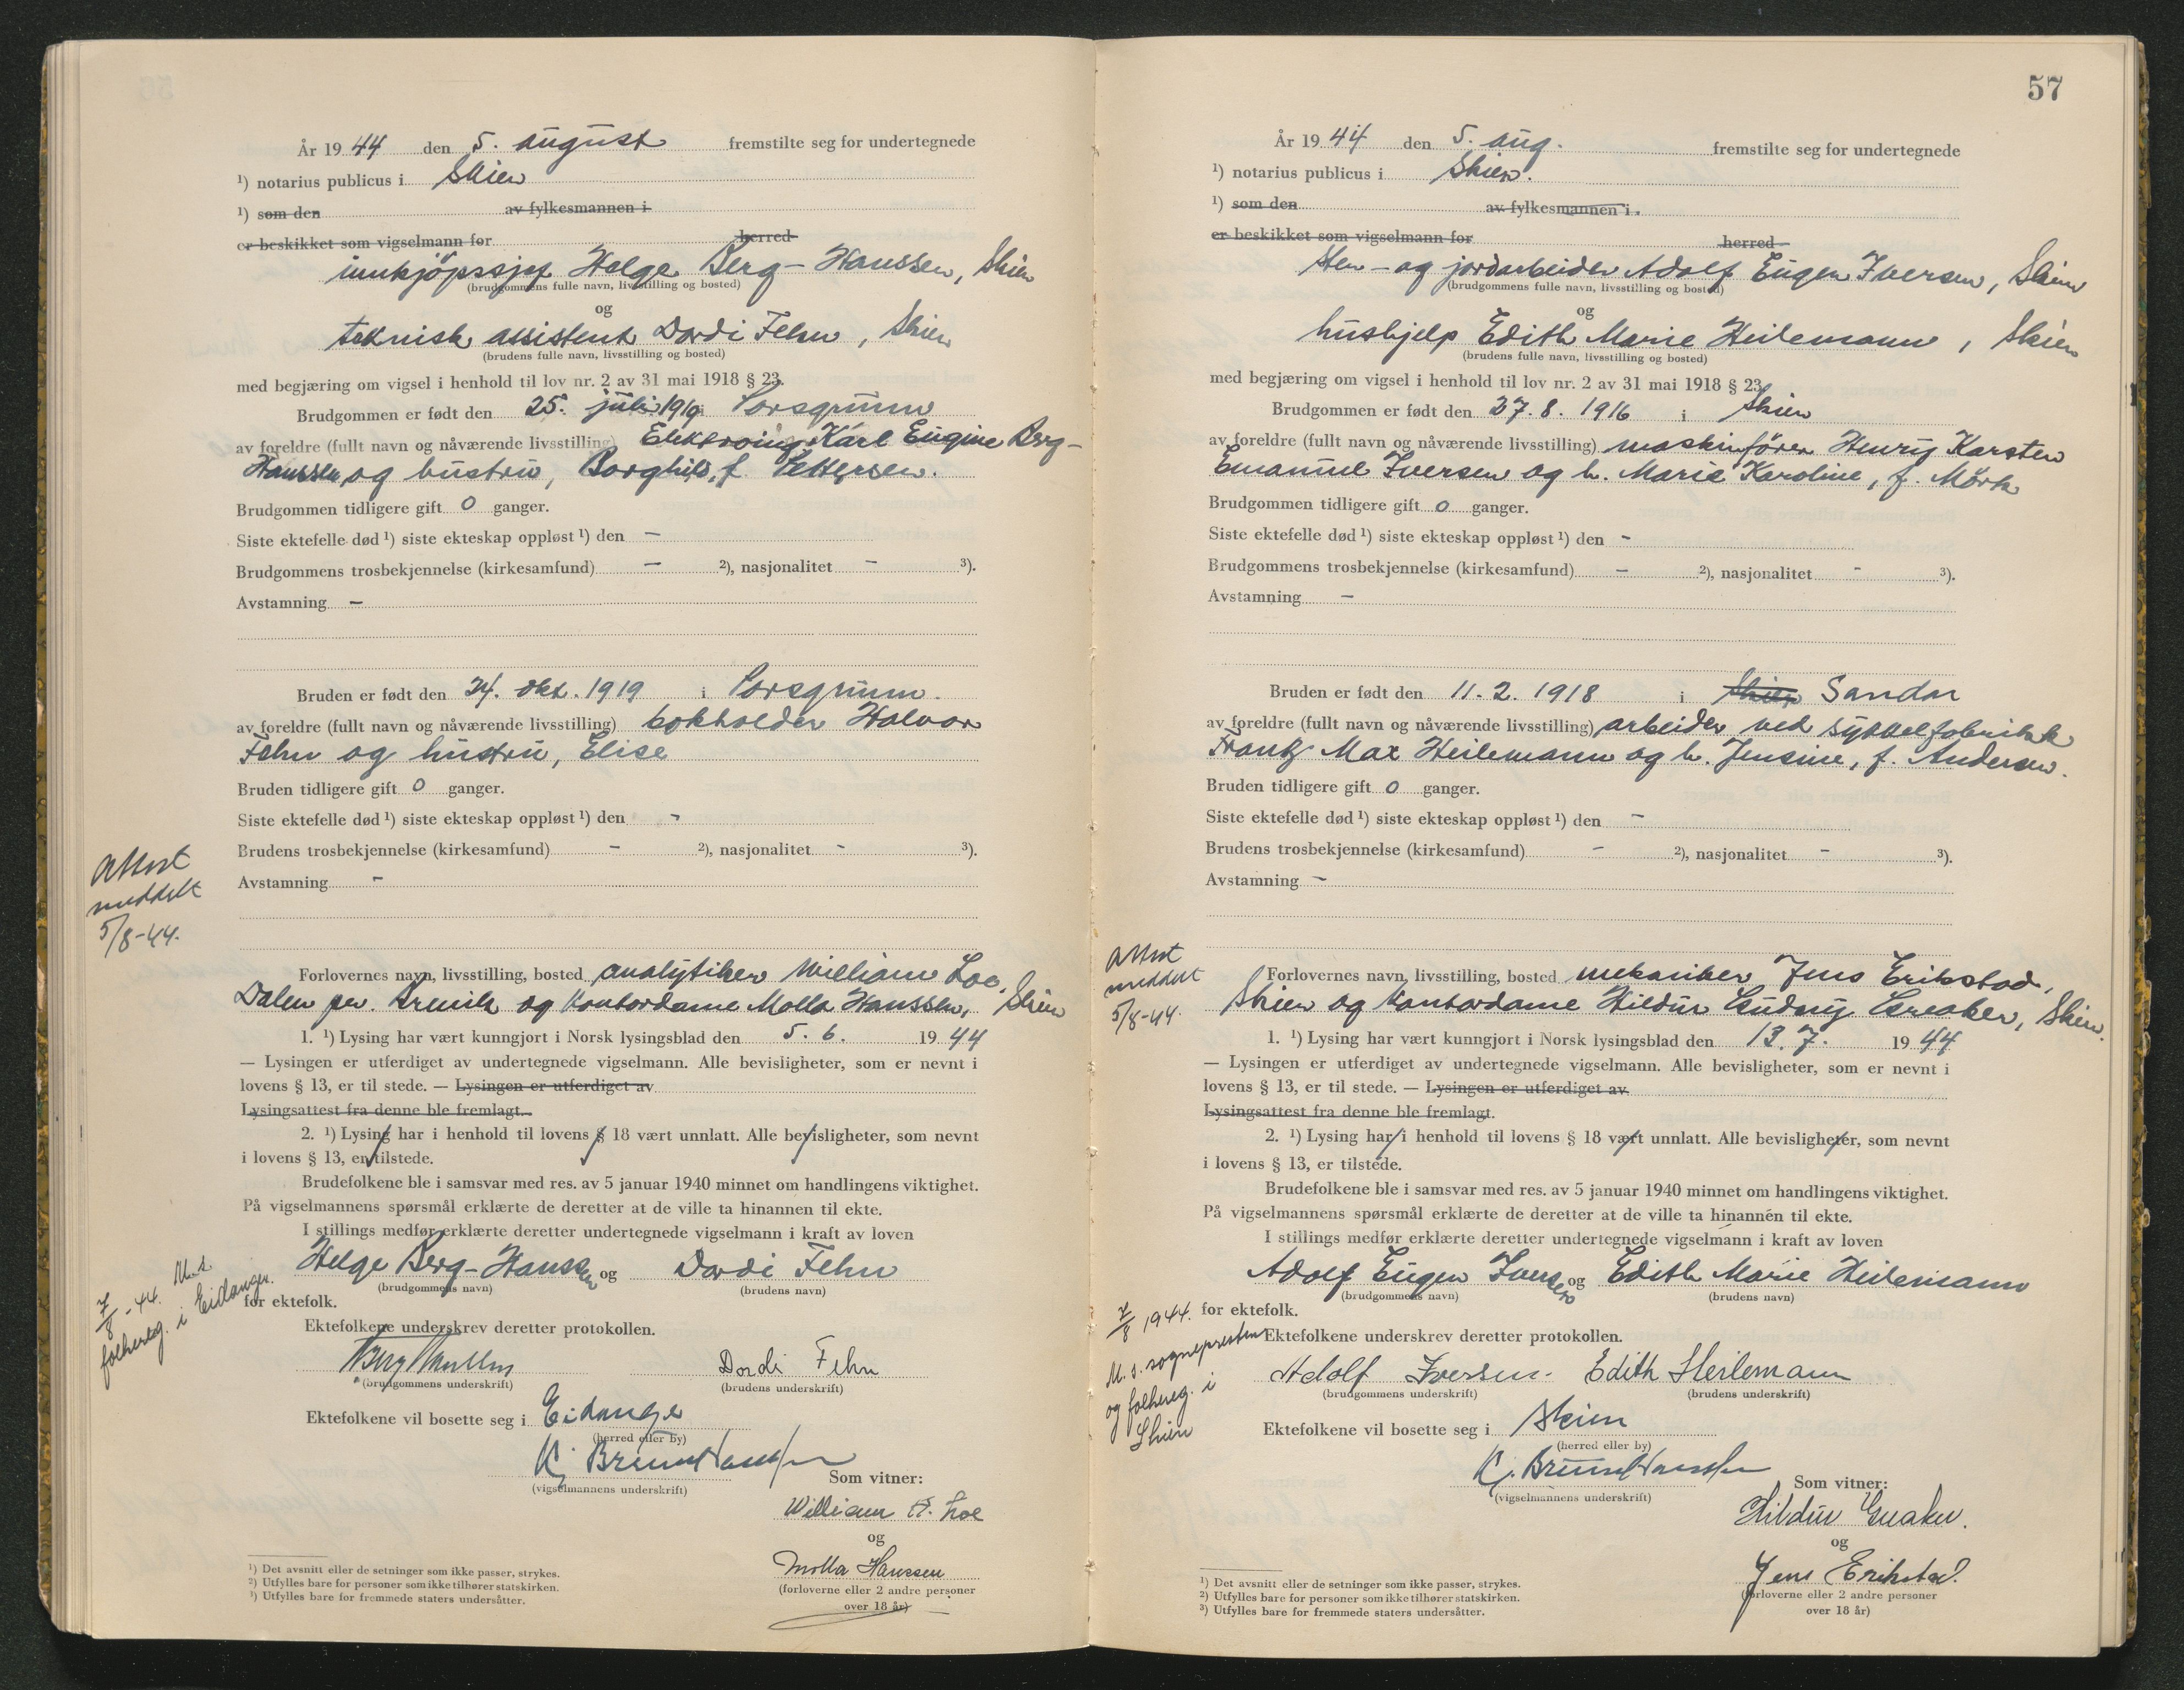 År 1944 den 5. august fremstilte seg for undertegnede
¹) notarius publicus i Skien
¹) som den av fylkesmannen i
er beskikket som vigselmann for herred
innkjøpssjef Helge Berg-Hanssen, Skien
(brudgommens fulle navn, livsstilling og bosted)
og
teknisk assistent Dordi Fehn, Skien
(brudens fulle navn, livsstilling og bosted)
med begjæring om vigsel i henhold til lov nr. 2 av 31 mai 1918 § 23.
Brudgommen er født den 25. juli 1919 i Porsgrunn
av foreldre (fullt navn og nåværende livsstilling) Elektroing. Karl Eugine Berg-
Hanssen og hustru, Borghild, f. Pettersen.
Brudgommen tidligere gift 0 ganger.
Siste ektefelle død ¹) siste ekteskap oppløst ¹) den –
Brudgommens trosbekjennelse (kirkesamfund) – ²), nasjonalitet – ³).
Avstamning –
Bruden er født den 24. okt. 1919 i Porsgrunn.
av foreldre (fullt navn og nåværende livsstilling) bokholder Halvor
Fehn og hustru, Elise
Bruden tidligere gift 0 ganger.
Siste ektefelle død ¹) siste ekteskap oppløst ¹) den –
Brudens trosbekjennelse (kirkesamfund) – ²), nasjonalitet – ³).
Avstamning –
Attest
meddelt
5/8-44.
Forlovernes navn, livsstilling, bosted analytiker William Loe,
Dalen pr. Brevik og kontordame Molla Hanssen, Skien
1. ¹) Lysing har vært kunngjort i Norsk lysingsblad den 5. 6. 1944
— Lysingen er utferdiget av undertegnede vigselmann. Alle bevisligheter, som er nevnt i
lovens § 13, er til stede. — Lysingen er utferdiget av
Lysingsattest fra denne ble fremlagt.
2. ¹) Lysing har i henhold til lovens § 18 vært unnlatt. Alle bevisligheter, som nevnt
i lovens § 13, er tilstede.
Brudefolkene ble i samsvar med res. av 5 januar 1940 minnet om handlingens viktighet.
På vigselmannens spørsmål erklærte de deretter at de ville ta hinannen til ekte.
I stillings medfør erklærte deretter undertegnede vigselmann i kraft av loven
Helge Berg-Hanssen og Dordi Fehn
(brudgommens navn) (brudens navn)
for ektefolk.
7/8-44. M.s.
folkereg. i Eidanger.
Ektefolkene underskrev deretter protokollen.
Berg Hanssen Dordi Fehn
(brudgommens underskrift) (brudens underskrift)
Ektefolkene vil bosette seg i Eidanger
(herred eller by)
(vigselmannens underskrift)
Som vitner:
William H. Loe
og
Molla Hanssen
(forloverne eller 2 andre personer
over 18 år)
¹) Det avsnitt eller de setninger som ikke passer, strykes.
²) Utfylles bare for personer som ikke tilhører statskirken.
³) Utfylles bare for fremmede staters undersåtter.
57
År 1944 den 5. aug. fremstilte seg for undertegnede
¹) notarius publicus i Skien.
¹) som den av fylkesmannen i
er beskikket som vigselmann for herred
Sten- og jordarbeider Adolf Eugen Iversen, Skien
(brudgommens fulle navn, livsstilling og bosted)
og
hushjelp Edith Marie Heilemann, Skien
(brudens fulle navn, livsstilling og bosted)
med begjæring om vigsel i henhold til lov nr. 2 av 31 mai 1918 § 23.
Brudgommen er født den 27. 8. 1916 i Skien
av foreldre (fullt navn og nåværende livsstilling) maskinfører Henrij Karsten
Emanuel Iversen og h. Marie Karoline, f. Mørk
Brudgommen tidligere gift 0 ganger.
Siste ektefelle død ¹) siste ekteskap oppløst ¹) den –
Brudgommens trosbekjennelse (kirkesamfund) – ²), nasjonalitet – ³).
Avstamning –
Bruden er født den 11. 2. 1918 i Skien Sandar
av foreldre (fullt navn og nåværende livsstilling) arbeider ved sykkelfabrikk
Frantz Max Heilemann og h. Jensine, f. Andersen.
Bruden tidligere gift 0 ganger.
Siste ektefelle død ¹) siste ekteskap oppløst ¹) den –
Brudens trosbekjennelse (kirkesamfund) – ²), nasjonalitet – ³).
Avstamning –
Attest
meddelt
5/8-44.
Forlovernes navn, livsstilling, bosted mekaniker Jens Erikstad,
Skien og kontordame Hildur Gudny Greaker, Skien.
1. ¹) Lysing har vært kunngjort i Norsk lysingsblad den 13. 7. 1944
— Lysingen er utferdiget av undertegnede vigselmann. Alle bevisligheter, som er nevnt i
lovens § 13, er til stede. — Lysingen er utferdiget av
Lysingsattest fra denne ble fremlagt.
2. ¹) Lysing har i henhold til lovens § 18 vært unnlatt. Alle bevisligheter, som nevnt
i lovens § 13, er tilstede.
Brudefolkene ble i samsvar med res. av 5 januar 1940 minnet om handlingens viktighet.
På vigselmannens spørsmål erklærte de deretter at de ville ta hinannen til ekte.
I stillings medfør erklærte deretter undertegnede vigselmann i kraft av loven
Adolf Eugen Iversen og Edith Marie Heilemann
(brudgommens navn) (brudens navn)
for ektefolk.
7/8 1944.
M.s. sognepresten
og folkereg. i
Skien
Ektefolkene underskrev deretter protokollen.
Adolf Iversen. Edith Heilemann
(brudgommens underskrift) (brudens underskrift)
Ektefolkene vil bosette seg i Skien
(herred eller by)
(vigselmannens underskrift)
Som vitner:
Hildur Greaker.
og
Jens Erikstad.
(forloverne eller 2 andre personer
over 18 år)
¹) Det avsnitt eller de setninger som ikke passer, strykes.
²) Utfylles bare for personer som ikke tilhører statskirken.
³) Utfylles bare for fremmede staters undersåtter.